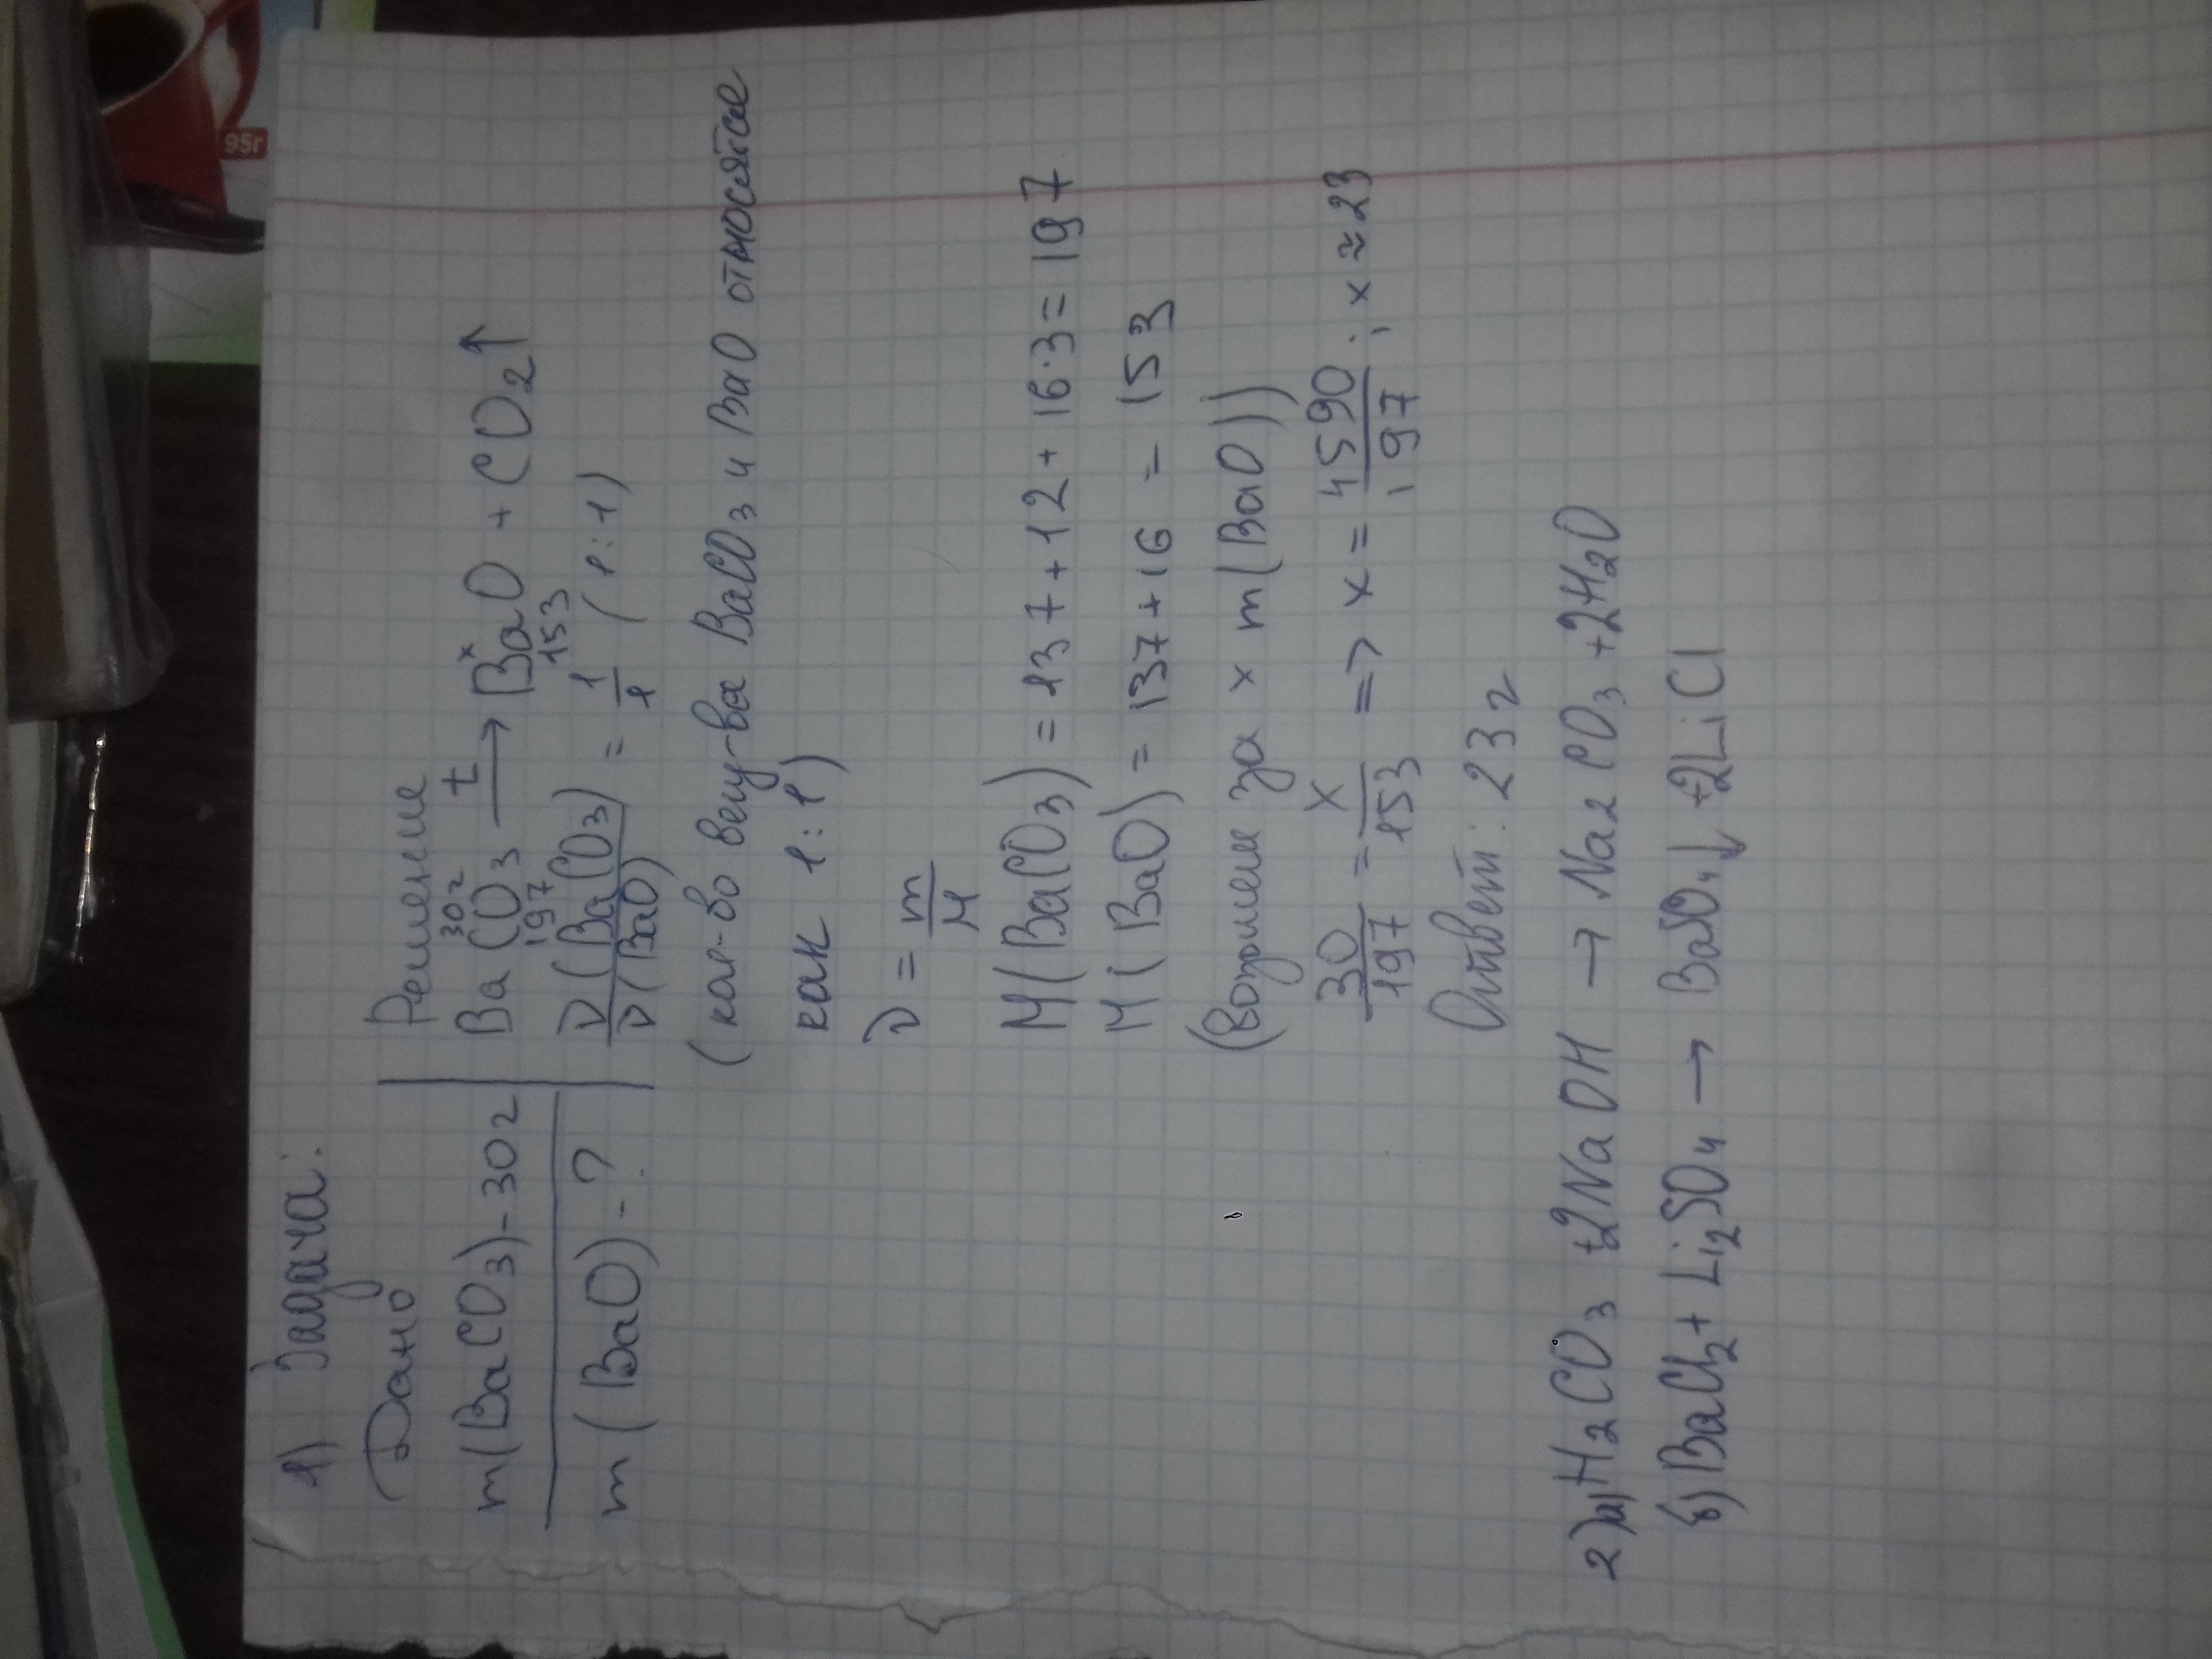 1) Задача:
Дано
m(BaCO3)-30г
m(BaO)-?
Решение
30г x
BaCO3 t→ BaO + CO2↑
197 153
ν(BaCO3)/ν(BaO) = 1/1 (1:1)
(кол-во вещ-ва BaCO3 и BaO относятся
как 1:1)
ν = m/M
M(BaCO3) = 137+12+16·3=197
M(BaO) = 137+16 = 153
(возьмем за x m(BaO))
30/197 = x/153 => x = 4590/197; x≈23
Ответ: 23г
2)а) H2CO3 +2NaOH → Na2CO3 +2H2O
б) BaCl2+ Li2SO4 → BaSO4↓ +2LiCl
95г